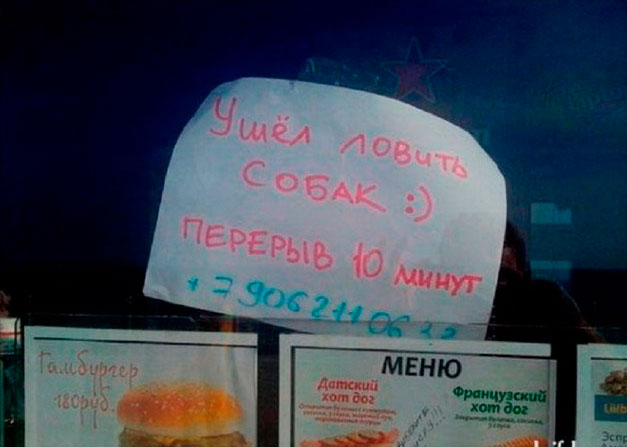 Ушёл ловить
СОБАК :)
ПЕРЕРЫВ 10 минут
Гамбургер
180руб.
МЕНЮ
Датский
хот дог
Французский
хот дог